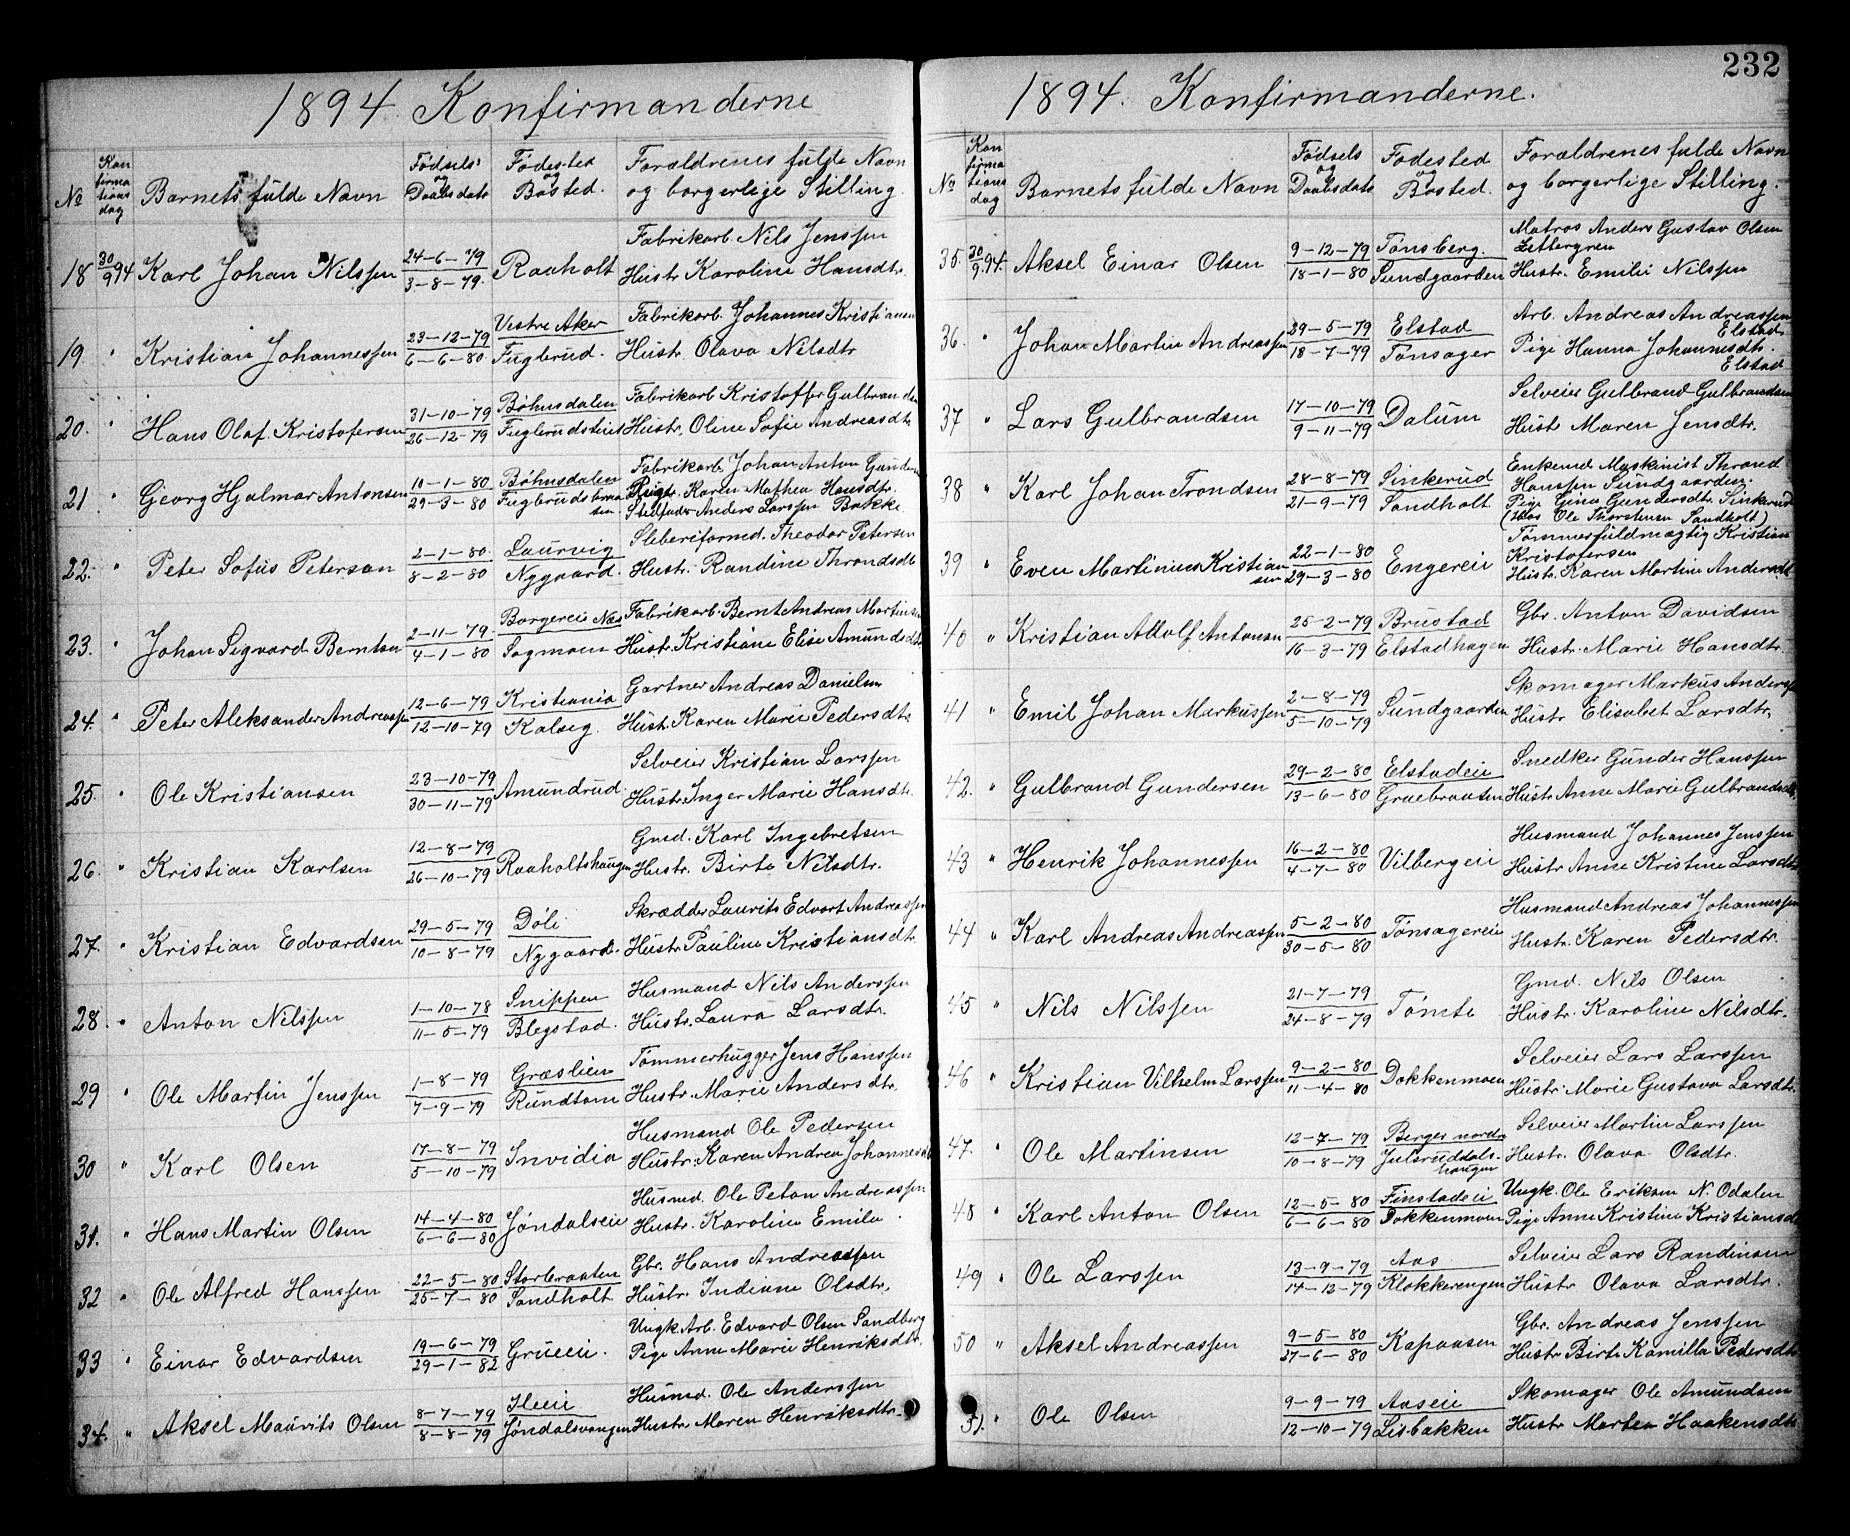 232
1894. Konfirmanderne
№ Konfirmationsdag Barnets fulde Navn Fødsels og Daabsdato Fødested og Bosted. Forældrenes fulde Navn og borgerlige Stilling.
18 30/9 94 Karl Johan Nilssen 24-6-79 3-8-79. Raaholt Fabrikarb. Nils Jenssen
Hustr. Karoline Hansdtr.
19. " Kristian Johannessen 23-12-79 6-6-80. Vestre Aker Fuglerud. Fabrikarb. Johannes Kristiansen
Hustr. Olava Nilsdtr
20. " Hans Olaf Kristofersen 31-10-79 26-12-79 Bøhnsdalen Fuglerudsteies Fabrikarb Kristoffer Gulbrandsen
Hustr. Oline Sofie Andreasdtr
21 " Georg Hjalmar Antonsen 10-1-80 29-3-80 Bøhnsdalen Fuglerudsbraaten Fabrikarb. Johan Anton Gundersen
Pige. Karen Mathea Hansdtr.
Stedfader Anders Larssen Bakke
22. " Peter Sofus Petersen 2-1-80. 8-2-80 Laurvig Nygaard. Sleberiformd. Theodor Petersen
Hustr. Randine Throndsdtr
23. " Johan Sigvard Berntsen 2-11-79. 4-1-80 Borgereie Næs Sagmoen Fabrikarb. Bernt Andreas Martinsen
Hustr. Kristiane Elise Amundsdtr
24. " Peter Aleksander Andreassen 12-6-79 12-10-79 Kristiania Kalseg. Gartner Andreas Danielsen
Hustr. Karen Marie Pedersdtr
25. " Ole Kristiansen 23-10-79 30-11-79 Amundrud. Selveier Kristian Larssen
Hustr. Inger Marie Hansdtr.
26. " Kristian Karlsen 12-8-79 26-10-79 Raaholtshaugen Gmd. Karl Ingebretsen
Hustr. Birte Nilsdtr.
27. " Kristian Edvardsen 29-5-79 10-8-79 Døli Nygaard. Skrædder Laurits Edvart Andreassen
Hustr. Pauline Kristiansdtr
28. " Anton Nilssen 1-10-78 11-5-79 Snippen Blegstad. Husmand Nils Anderssen
Hustr. Laura Larsdtr.
29 " Ole Martin Jenssen 1-8-79 7-9-79 Græslien Rundtom Tømmerhugger Jens Hanssen
Hustr. Marie Andersdtr.
30 " Karl Olsen 17-8-79 5-10-79 Invidia Husmand Ole Pedersen
Hustr. Karen Andrea Johannesdtr
31. " Hans Martin Olsen 14-4-80 6-6-80 Jøndalseie Husmd. Ole Petan Andreassen
Hustr. Karoline Emilie
32 " Ole Alfred Hanssen 22-5-80 25-7-80 Storbraaten Sandholt Gbr. Hans Andreassen
Hustr. Indiane Olsdtr.
33 " Einar Edvardsen 19-6-79 29-1-82 Grüeeie. Ungk. Arb. Edvard Olsen Sandberg
Pige Anne Marie Henriksdtr.
34. " Aksel Mauvits Olsen 8-7-79 8-8-79 Ileeie Jøndalsvangen Husmd. Ole Anderssen
Hustr. Maren Henriksdtr.
1894. Konfirmanderne.
№ Konfirmationsdag Barnets fulde Navn Fødsels og Daabsdato Fødested og Bosted. Forældrenes fulde Navn og borgerlige Stilling.
35. 30/9 94. Aksel Einar Olsen 9-12-79 18-1-80 Tønsberg. Sundgaarden Matros Anders Gustav Olsen
Zettergren
Hustr. Emilie Nilssen
36. " Johan Martin Andreassen 29-5-79 18-7-79 Elstad Tønsager Arb. Andreas Andreassen
Elstad
Pige Hanna Johannesdtr.
Elstad
37 " Lars Gulbrandsen 17-10-79 9-11-79 Dalum Selveier Gulbrand Gulbrandsen
Hustr Maren Jensdtr.
38 " Karl Johan Trondsen 28-8-79 21-9-79 Sinkerud Sandholt Enkemd Maskinist Thrond
Hanssen Sundgaarden.
Pige Gina Gundersdtr. Sinkerud
(Hos Ole Thorstensen Sandholt)
39 " Even Martinius Kristiansen 22-1-80 29-3-80 Engereie Tømmerfuldmægtig Kristian
Kristofersen
Hustr. Karen Martine Andersdtr
40 " Kristian Adolf Antonsen 25-2-79 16-3-79 Brustad Elstadhagen Gbr. Anton Davidsen
Hustr. Marie Hansdtr.
41 " Emil Johan Markussen 2-8-79 5-10-79 Sundgaarden Skomager Markus Anderssen
Hustr Elisabet Larsdtr.
42. " Gulbrand Gundersen 29-2-80 13-6-80 Elstadeie Gruebraaten Snedker Gunder Hanssen
Hustr Anne Marie Gulbrandsdtr.
43 " Henrik Johannessen 16-2-80 4-7-80 Vilbergeie Husmand Johannes Jenssen
Hustr Anne Kristine Larsdtr
44 " Karl Andreas Andreassen 5-2-80 30-5-80 Tønsagereie Husmand Andreas Johannessen
Hustr. Karen Pedersdtr.
45 " Nils Nilssen 21-7-79 24-8-79 Tømte Gmd. Nils Olsen
Hustr. Karoline Nilsdtr.
46 " Kristian Vilhelm Larssen 9-2-80 11-4-80 Dokkenmoen Selveier Lars Larssen
Hustr. Marie Gustava Larsdtr.
47. " Ole Martinsen 12-7-79 10-8-79 Berger nordre Julsrudsdalshaugen Selveier Martin Larssen
Hustr. Olava Olsdtr.
48 " Karl Anton Olsen 12-5-80 6-6-80 Finstadeie Dokkenmoen Ungk. Ole Eriksen N. Odalen
Pige Anne Kristine Kristiansd
49 " Ole Larssen 13-9-79 14-12-79 Aas Klokkerengen Selveier Lars Randinsen
Hustr Olava Larsdtr.
50 " Aksel Andreassen 9-5-80 27-6-80 Kapaasen Gbr. Andreas Jenssen
Hustr Birte Kamilla Pedersdtr
51. " Ole Olsen 9-9-79 12-10-79 Aaseie Lisbakken Skomager Ole Amundsen
Hustr Martea Haakensdtr